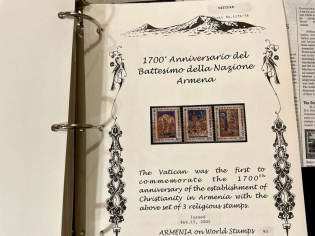 VATICAN
1700° Anniversario del
Battesimo della Nazione
Armena
The Vatican was the first to
commemorate the 1700th
anniversary of the establishment of
Christianity in Armenia with the
above set of 3 religious stamps.
Issued
Feb.15, 2001
ARMENIA on World Stamps